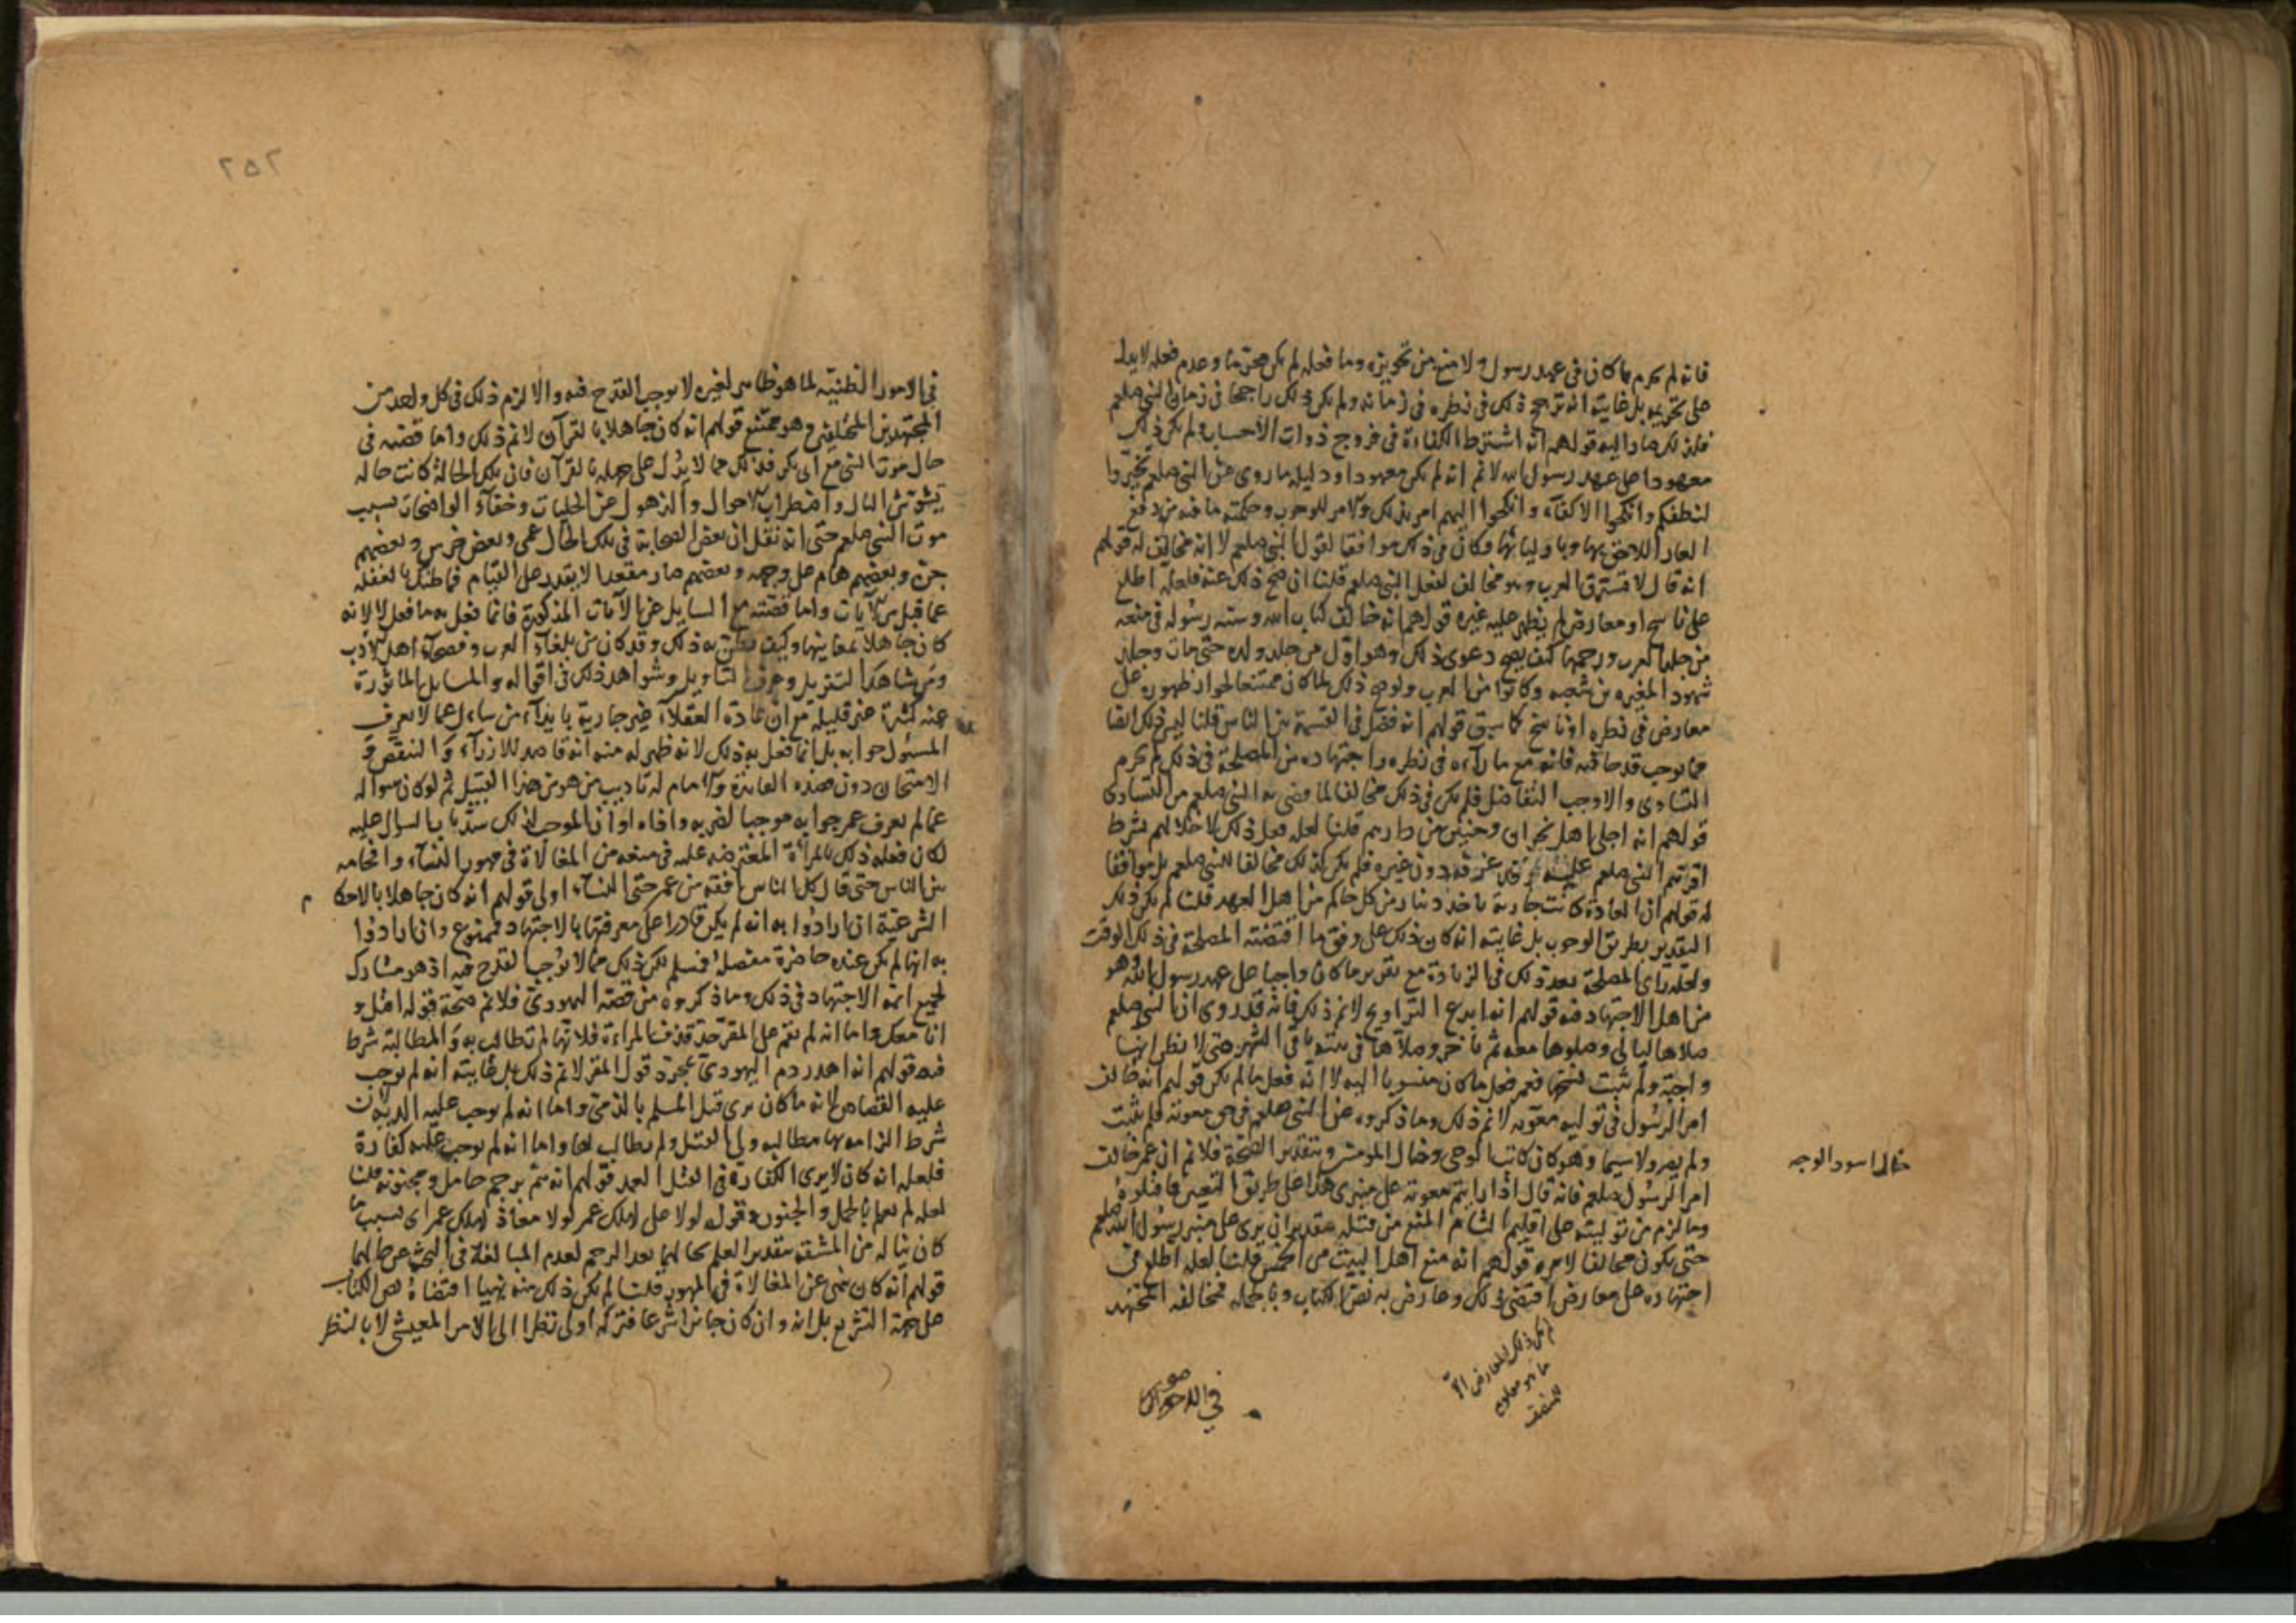 فانه لم يحرم ما كان فى عهد رسول ولا منع من تجويزه وما فعله لم يكن محرما وعدم فعله لا يدل
على تحريمه بل غايته انه ترجح ذلك فى نظره فى زمانه ولم يكن ذلك راجحا فى زمان النبى صلعم
فلذلك صار اليه قولهم انه اشترط الكفاءة فى فروج ذوات الاحساب ولم يكن ذلك
معهودا على عهد رسول الله لا نم انه لم يكن معهودا ودليله ما روى عن النبى صلعم تخيروا
لنطفكم وانكحوا الاكفآء وانكحوا اليهم امر بذلك والامر للوجوب وحكمته ما فيه من دفع
العار اللاحق بها وباوليائها وكان فى ذلك موافقا لقول النبى صلعم لا انه مخالف له قولهم
انه قال لا تسترق العرب وهو مخالف لفعل النبى صلعم قلنا ان صح ذلك عنه فلعله اطلع
على ناسخ او معارض لم يظهر عليه غيره قولهم انه خالف كتاب الله وسنة رسوله فى منعه
من جلد العرب ورجمها كيف يصح دعوى ذلك وهو اول من جلد ولده حتى مات وجلد
شهود المغيره بن شعبه وكانوا من العرب ولو صح ذلك لما كان ممتنعا لجواز ظهوره على
معارض فى نظره او ناسخ كما سبق قولهم انه فضل فى القسمة بين الناس قلنا ليس ذلك ايضا
مما يوجب قدحا فيه فانه مع ما رآه فى نظره واجتهاده من المصلحة فى ذلك لم يحرم
التساوى والا وجب التفاضل فلم يكن فى ذلك مخالفا لما قضى به النبى صلعم من التساوى
قولهم انه اجلى اهل نجران وخيبر من دارهم قلنا لعله فعل ذلك لاخلالهم بشرط
اقرهم النبى صلعم عليه دون غيره فلم يكن بذلك مخالفا للنبى صلعم بل موافقا
له قولهم ان العادة كانت جارية باخذ دينار من كل حالم من اهل العهد قلنا لم يكن ذلك
التقدير بطريق الوجوب بل غايته انه كان ذلك على وفق ما اقتضته المصلحة فى ذلك الوقت
ولعله رأى المصلحة بعد ذلك فى الزيادة مع تقرير ما كان واجبا على عهد رسول الله وهو
من اهل الاجتهاد فيه قولهم انه ابدع التراويح لا نم ذلك فانه قد روى ان النبى صلعم
صلاها ليالى وصلوها معه ثم تاخر وصلاها فى بيته باقى الشهر حتى لا يظن انها
واجبة ولم يثبت نسخها فعمر فعل ما كان منسوبا اليه لا انه فعل ما لم يكن قولهم انه خالف
امر الرسول فى توليه معويه لا نم ذلك وما ذكروه عن النبى صلعم فى حق معويه فلم يثبت
ولم يصح ولا سيما وهو كان كاتب الوحى وخال المؤمنين وبتقدير الصحة فلا نم ان عمر خالف
امر الرسول صلعم فانه قال اذا رايتم معويه على منبرى هذا على طريق التعيين فاقتلوه
وما لزم من توليته على اقليم الشام المنع من قتله بتقدير ان يرى على منبر رسول الله صلعم
حتى يكون مخالفا لامره قولهم انه منع اهل البيت من الخمس قلنا لعله اطلع فى
اجتهاده على معارض اقتضى ذلك وعارض به نص الكتاب وبالجمله فمخالفه المجتهد
خال اسود الوجه
لم يكن ذلك المعارض الا
ما هو معلوم
للمنصف
٢٥٢
فى الامور الظنية لما هو ظاهر لغيره لا يوجب القدح فيه والا لزم ذلك فى كل واحد من
المجتهدين المختلفين وهو ممتنع قولهم انه كان جاهلا بالقرآن لا نم ذلك واما قضيته فى
حال موت النبى مع ابى بكر فذلك مما لا يدل على جهله بالقرآن فان تلك الحالة كانت حاله
تشوش البال واضطراب الاحوال والذهول عن الجليات وخفآء الواضحات بسبب
موت النبى صلعم حتى انه نقل ان بعض الصحابة فى تلك الحال عمى وبعض خرس وبعضهم
جن وبعضهم هام على وجهه وبعضهم صار مقعدا لا يقدر على القيام فما ظنك بالغفلة
عما قيل من الآيات واما قضيته مع السايل عن الآيات المذكورة فانما فعل به ما فعل لا لانه
كان جاهلا بمعانيها وكيف يظن به ذلك وقد كان من بلغآء العرب وفصحآء اهل الادب
ومن شاهد التنزيل وعرف التاويل وشواهد ذلك فى اقواله والمسايل الماثورة
عنه كثيرة غير قليلة مع ان عادة العقلآء غير جارية بايذآء من سأل عما لا يعرف
المسئول جوابه بل انما فعل به ذلك لانه ظهر له منه انه قاصد للازرآء والتنقص و
الامتحان دون قصده الفائدة والامام له تاديب من هو من هذا القبيل ثم لو كان سؤاله
عما لم يعرف عمر جوابه موجبا لضربه واذاه او ان الموجب لذلك بالسؤال عليه
لكان فعله ذلك بالمرأة المعترضه عليه فى منعه من المغالاة فى مهور النسآء وافحامه
بين الناس حتى قال كل الناس افقه من عمر حتى النسآء اولى قولهم انه كان جاهلا بالاحكام
الشرعية ان ارادوا به انه لم يكن قادرا على معرفتها بالاجتهاد فممنوع وان ارادوا
به انها لم يكن عنده حاضرة مفصلة فمسلم لكن ذلك مما لا يوجب القدح فيه اذ هو مشارك
لجميع ائمة الاجتهاد فى ذلك وما ذكروه من قصة اليهودى فلا نم صحة قوله اقتل و
انا معك واما انه لم يقم على المقر حد قذف المراة فلانها لم تطالب به والمطالبة شرط
فيه قولهم انه اهدر دم اليهودى بمجرد قول المقر لا نم ذلك بل غايته انه لم يوجب
عليه القصاص لانه ما كان يرى قتل المسلم بالذمى واما انه لم يوجب عليه الدية لان
شرط الزامه بها مطالبة ولى القتيل ولم يطالب بها واما انه لم يوجب عليه كفارة
فلعله انه كان لا يرى الكفارة فى القتل العمد قولهم انه هم برجم حامل ومجنونة قلنا
لعله لم يعلم بالحمل والجنون وقوله لولا على لهلك عمر لولا معاذ لهلك عمر اى بسبب ما
كان يناله من المشقه بتقدير العلم بحالهما بعد الرجم لعدم المبالغة فى البحث عن حالهما
قولهم انه كان نهى عن المغالاة فى المهور قلنا لم يكن ذلك منه نهيا اقتضاه نص الكتاب
على جهة التشريع بل انه وان كان جائزا شرعا فتركه اولى نظرا الى الامر المعيشى لا بالنظر